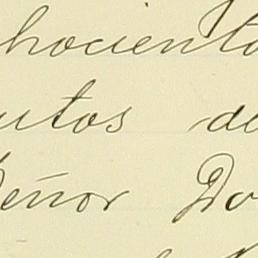 hociento
utos de
eñor Do